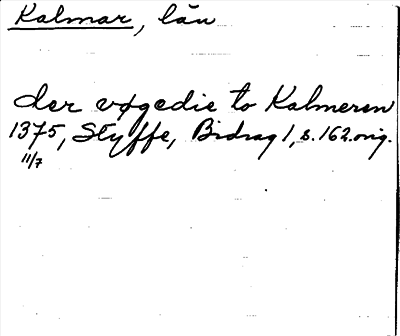 Kalmar, län
der vogedie to Kalmeren
1375, Styffe, Bidrag 1, s. 162. orig.
11/7